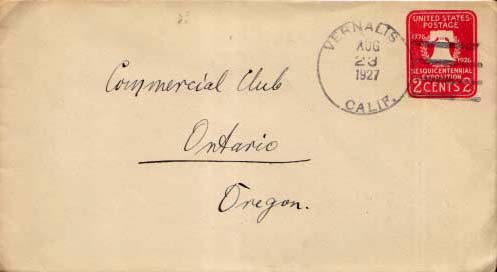 VERNALIS
AUG
23
1927
CALIF.
UNITED STATES
POSTAGE
1776 1926
SESQUICENTENNIAL
EXPOSITION
2 CENTS 2
Commercial Club
Ontario
Oregon.